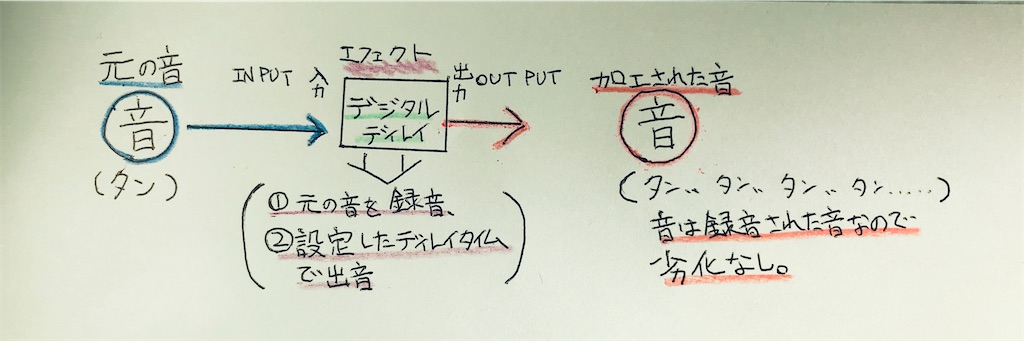 元の音
音
(タン)
INPUT 入力
エフェクト
デジタル
ディレイ
出力 OUT PUT
①元の音を録音、
②設定したディレイタイム
で出音
加工された音
音
(タン、、タン、、タン、、タン……)
音は録音された音なので
劣化なし。